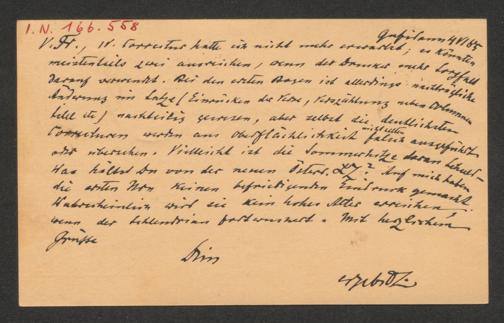 I. N. 166.558
Grafitzam 4/VI 85
V. Fr., II. Correctur hatte ich nicht mehr erwartet; es könnten
meistentheils zwei ausreichen, wenn der Drucker mehr Sorgfalt
darauf verwendet. Bei den ersten Bogen ist allerdings nachträgliche
Änderung im Satze (Einrücken der Verse, Verszählung neben Columnen
titel etc) nachtheilig gewesen, aber selbst die deutlichsten
Correcturen werden aus Oberflächlichkeit mitunter falsch ausgeführt
oder übersehen. Vielleicht ist die Sommerhitze daran Schuld.
Was hältst Du von der neuen Österr. Ztg? Auf mich haben
die ersten Nrn keinen befriedigenden Eindruck gemacht.
Wahrscheinlich wird sie kein hohes Alter erreichen,
wenn der Schlendrian fortdauert. – Mit herzlichem
Grüsse
Dein
ergebst